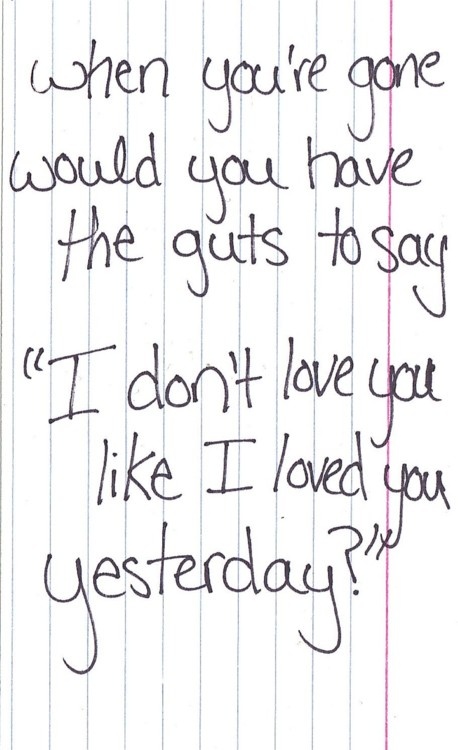 when you're gone
would you have
the guts to say
"I don't love you
like I loved you
yesterday?"